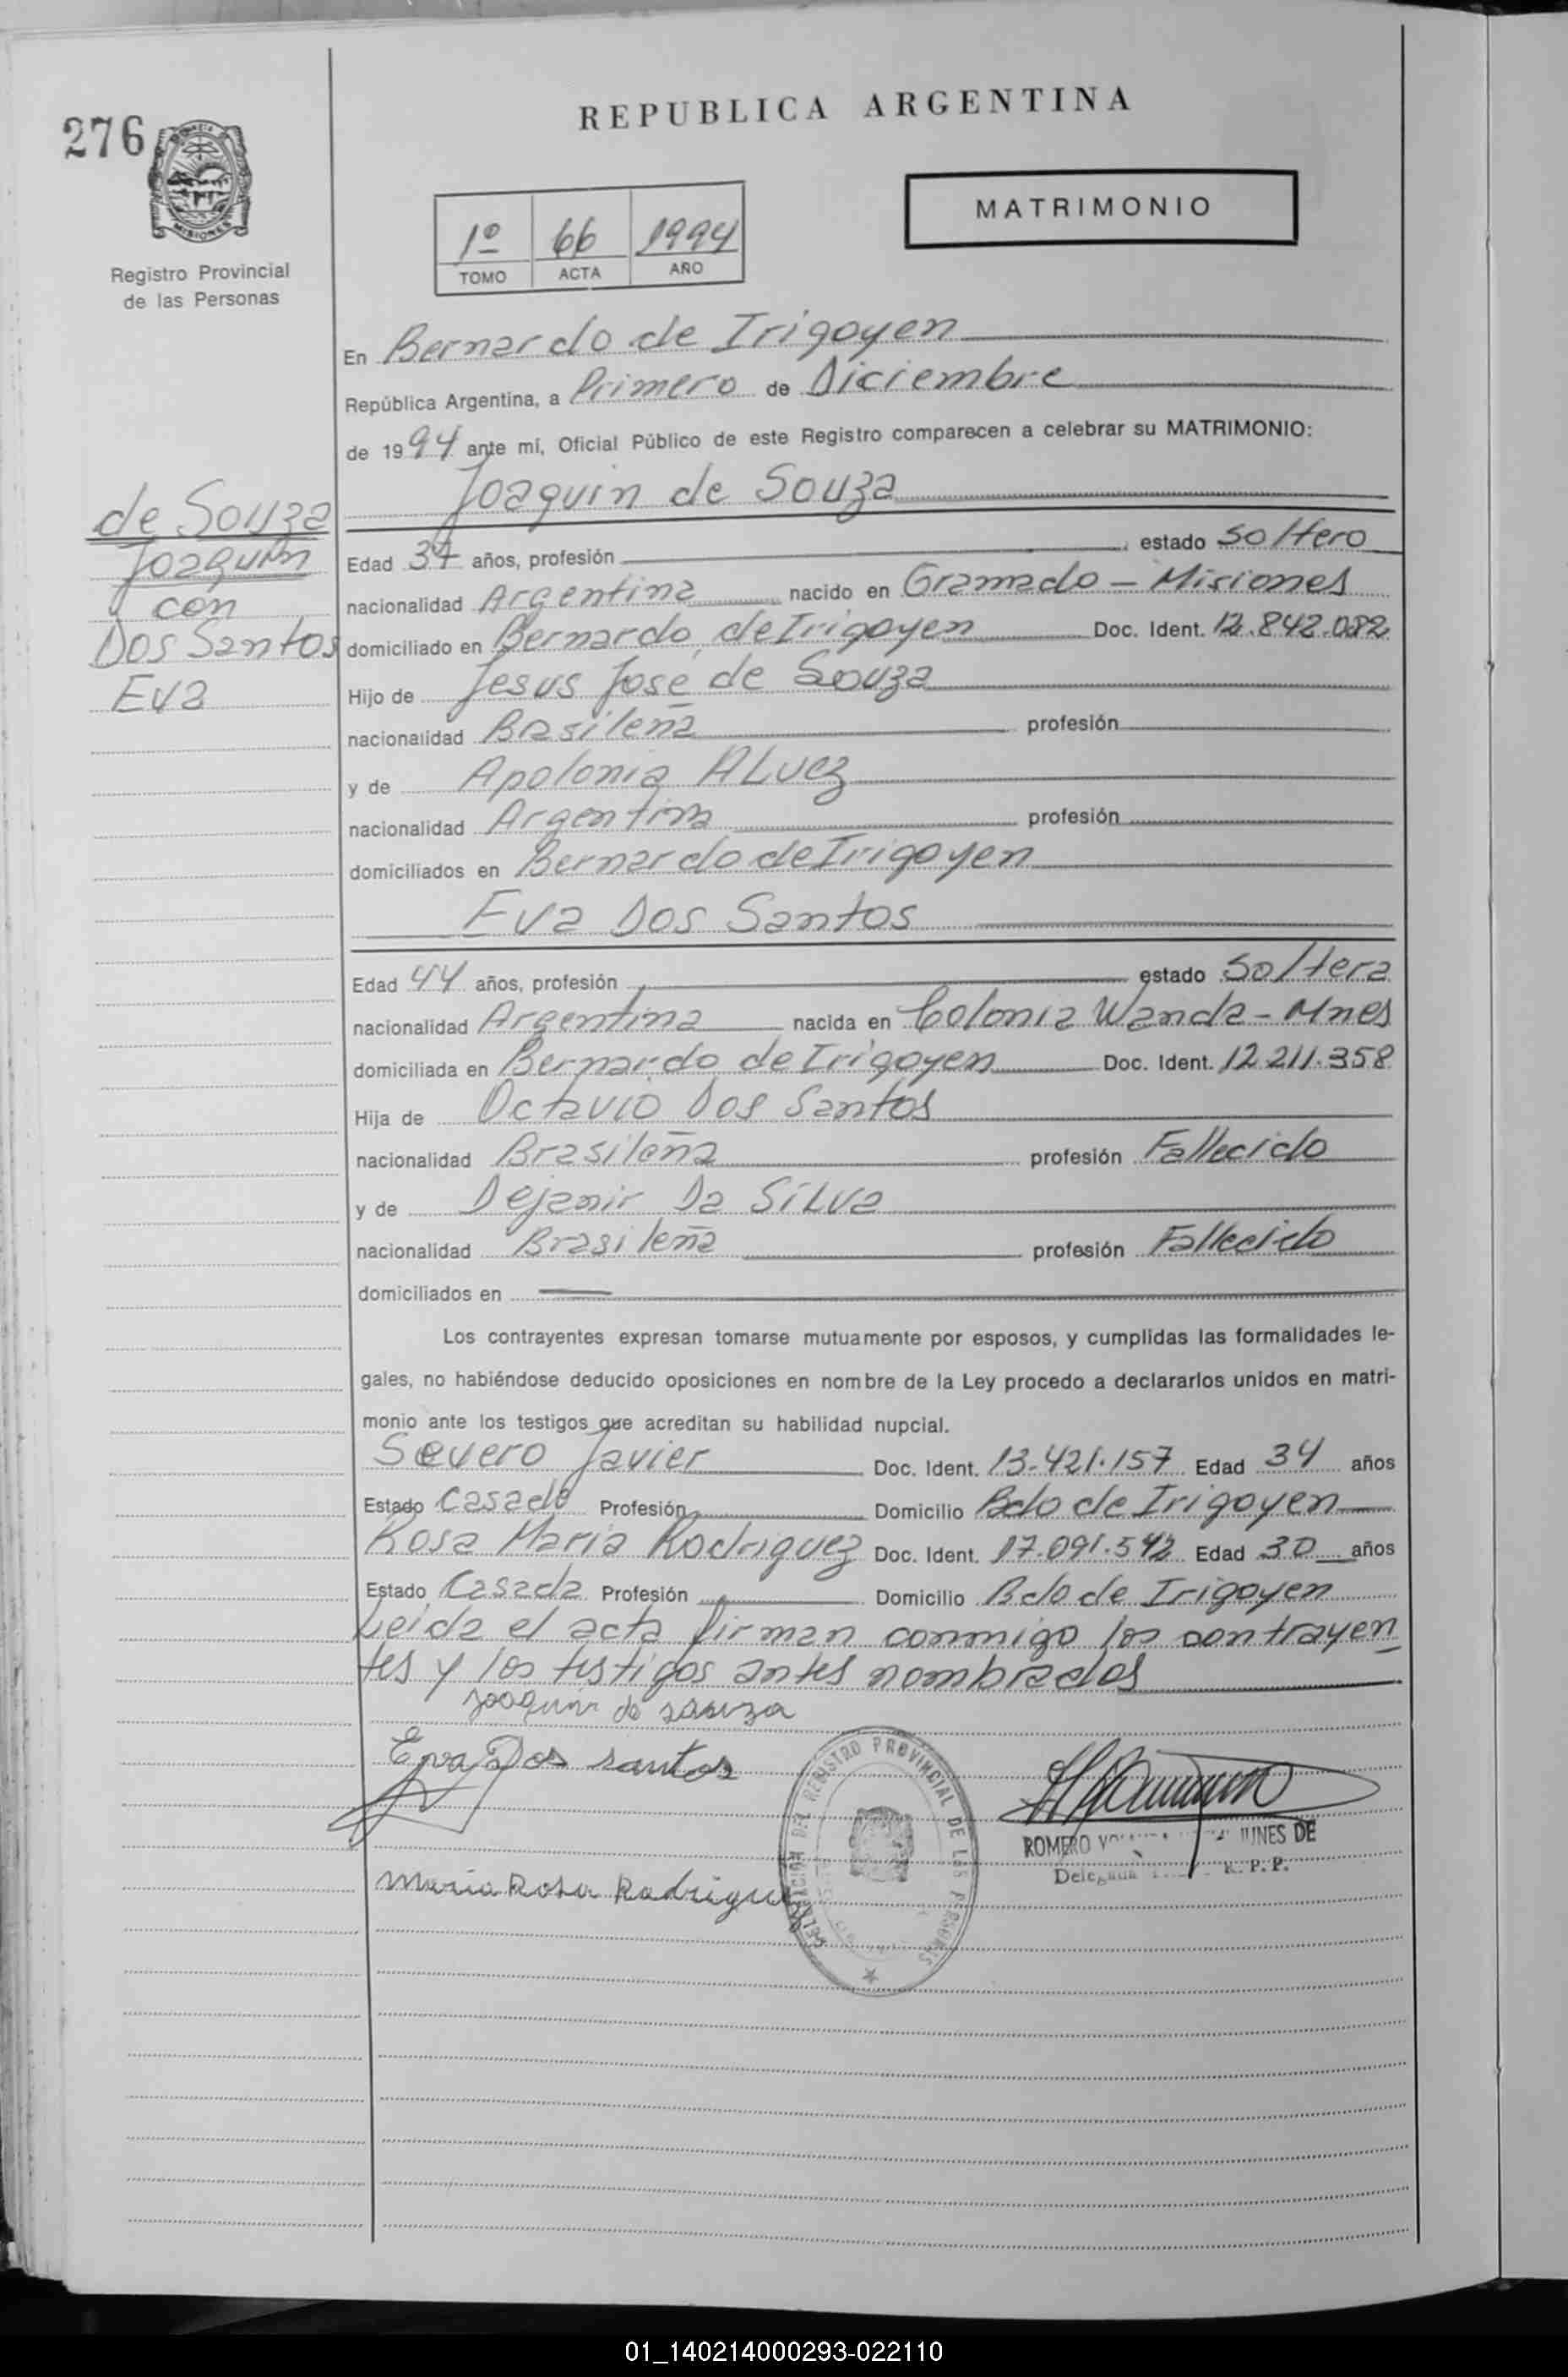 276
MISIONES
Registro Provincial
de las Personas
REPUBLICA ARGENTINA
MATRIMONIO
1º 66 1994
TOMO ACTA AÑO
En Bernardo de Irigoyen
República Argentina, a Primero de Diciembre
de 1994 ante mí, Oficial Público de este Registro comparecen a celebrar su MATRIMONIO:
Joaquin de Souza
de Souza
Joaquin
con
Dos Santos
Eva
Edad 37 años, profesión estado Soltero
nacionalidad Argentina nacido en Gramado - Misiones
domiciliado en Bernardo de Irigoyen Doc. Ident. 12.842.082
Hijo de Jesus José de Souza
nacionalidad Brasileña profesión
y de Apolonia ALvez
nacionalidad Argentina profesión
domiciliados en Bernardo de Irigoyen
Eva Dos Santos
Edad 44 años, profesión estado Soltera
nacionalidad Argentina nacida en Colonia Wanda - Mnes
domiciliada en Bernardo de Irigoyen Doc. Ident. 12.211.358
Hija de Octavio Dos Santos
nacionalidad Brasileña profesión Fallecido
y de Dejanir Da SiLva
nacionalidad Brasileña profesión Fallecido
domiciliados en —
Los contrayentes expresan tomarse mutuamente por esposos, y cumplidas las formalidades le-
gales, no habiéndose deducido oposiciones en nombre de la Ley procedo a declararlos unidos en matri-
monio ante los testigos que acreditan su habilidad nupcial.
Severo Javier Doc. Ident. 13.421.157 Edad 34 años
Estado Casado Profesión Domicilio Bdo de Irigoyen
Rosa Maria Rodriguez Doc. Ident. 17.091.542 Edad 30 años
Estado Casada Profesión Domicilio Bdo de Irigoyen
Leida el acta firman conmigo los contrayen
tes y los testigos antes nombrados
Joaquin de souza
Eva Dos santos
REGISTRO PROVINCIAL DE LAS PERSONAS
ROMERO UNES DE
R. P. P.
Maria Rosa Rodriguez
01_140214000293-022110